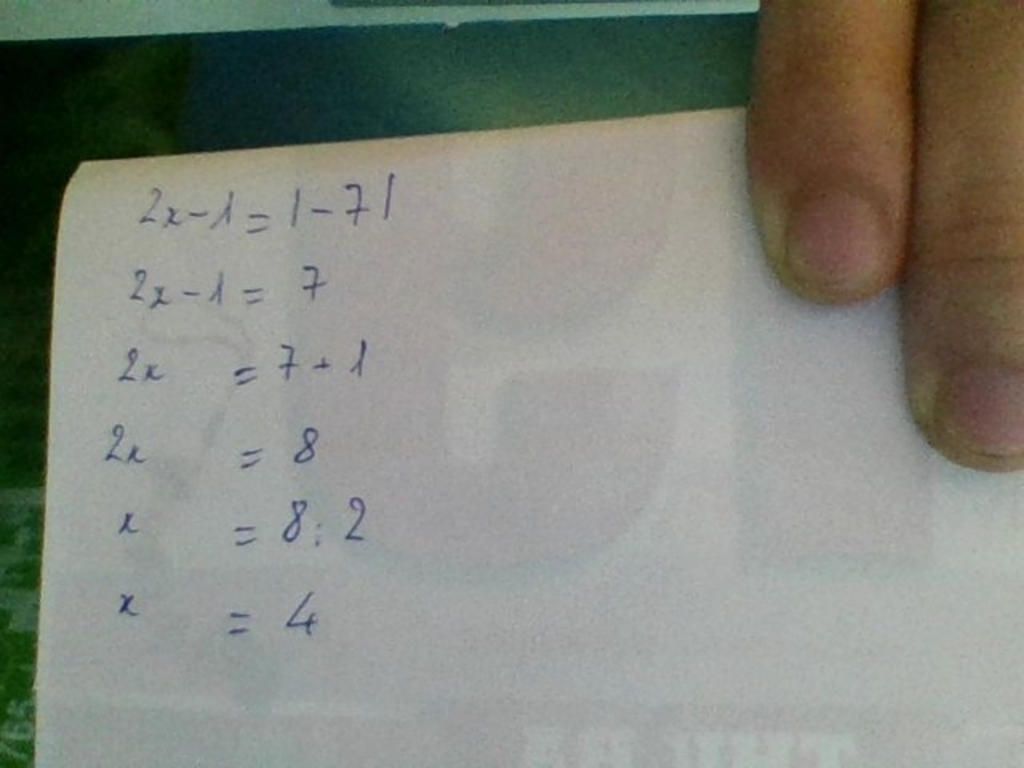 2x-1=|-7|
2x-1= 7
2x = 7+1
2x = 8
x = 8:2
x = 4